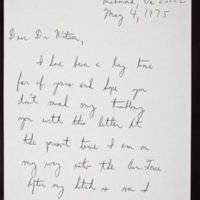 Richmond, Va 23222
May 4, 1975
Dear Dr Witson,
I have been a big time
fan of yours and hope you
don't mind my troubling
you with this letter. At
the present time I am on
my way into the Air Force
After my hitch is over I